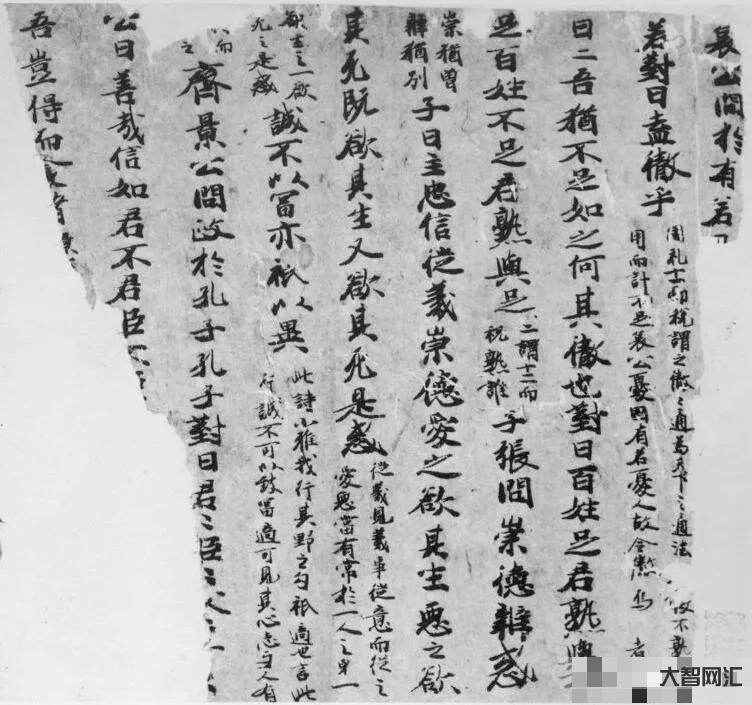 哀公問於有若
若對曰盍徹乎
周礼十一而税謂之徹〻通為天下之通法
用而計不足哀公憂國有若憂人故令徹焉
曰二吾猶不足如之何其徹也對曰百姓足君熟與
足百姓不足君熟與足
二謂十二而
税熟誰
子張問崇德辨惑
崇猶曽
辨猶別
子曰主忠信從義崇德愛之欲其生惡之欲
其死既欲其生又欲其死是惑
從義見義事從意而從之
愛惡當有常於一人之身一
欲生之一欲
死之是惑
誠不以富亦祇以異
此詩小雅我行其野之勾祇適也言此
行誠不可以致富適可見其心志与人有
之
齊景公問政於孔子孔子對曰君〻臣〻父〻
公曰善哉信如君不君臣不
吾豈得而食諸
大智网汇